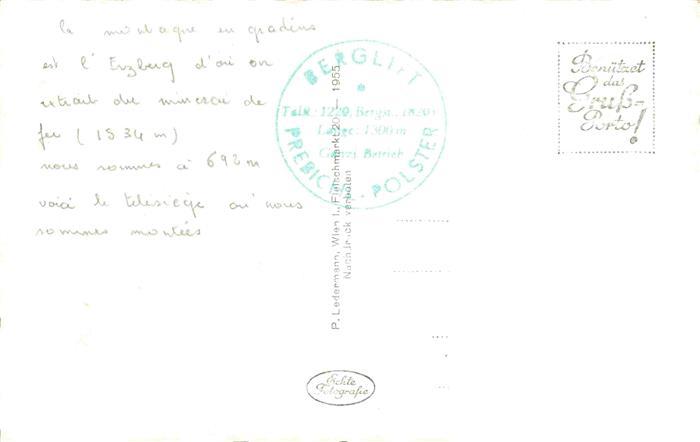 la montagne en gradins
est l'Erzberg d'où on
extrait du minerai de
fer (1534 m)
nous sommes à 692 m
voici le télésiège où nous
sommes montées
BERGLIFT
Talst.: 1220, Bergst.: 1820
Länge: 1300 m
Ganzj. Betrieb
POLSTER
P. Ledermann, Wien I., Fleischmarkt 20 — 1955
Nachdruck verboten
Benützet
das
Gruß-
Porto!
Echte
Fotografie